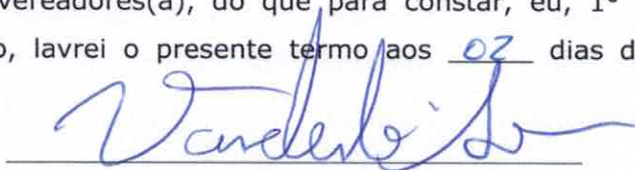 vereadores(a), do que para constar, eu, 1º
o, lavrei o presente termo aos 02 dias d